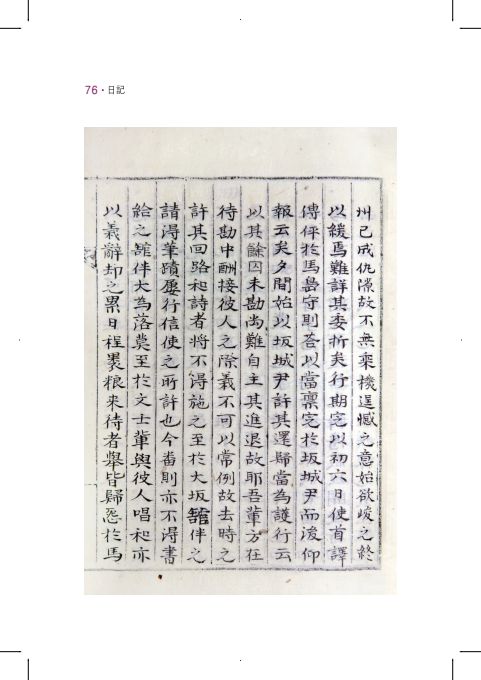 76 · 日記
州已成仇隙故不無乘機逞憾之意始欲峻之終
以緩焉難詳其委折矣行期定以初六日使首譯
傳伻於馬島守則荅以當稟定於坂城尹而後仰
報云矣夕間始以坂城尹許其還歸當為護行云
以其餘囚未勘尚難自主其進退故耶吾輩方在
待勘中酬接彼人之際義不可以常例故去時之
許其回路和詩者將不得施之至於大坂舘伴之
請得筆蹟屢行信使之所許也今番則亦不得書
給之舘伴大為落莫至於文士輩與彼人唱和亦
以義辭却之累日程裹粮来待者擧皆歸怨於馬